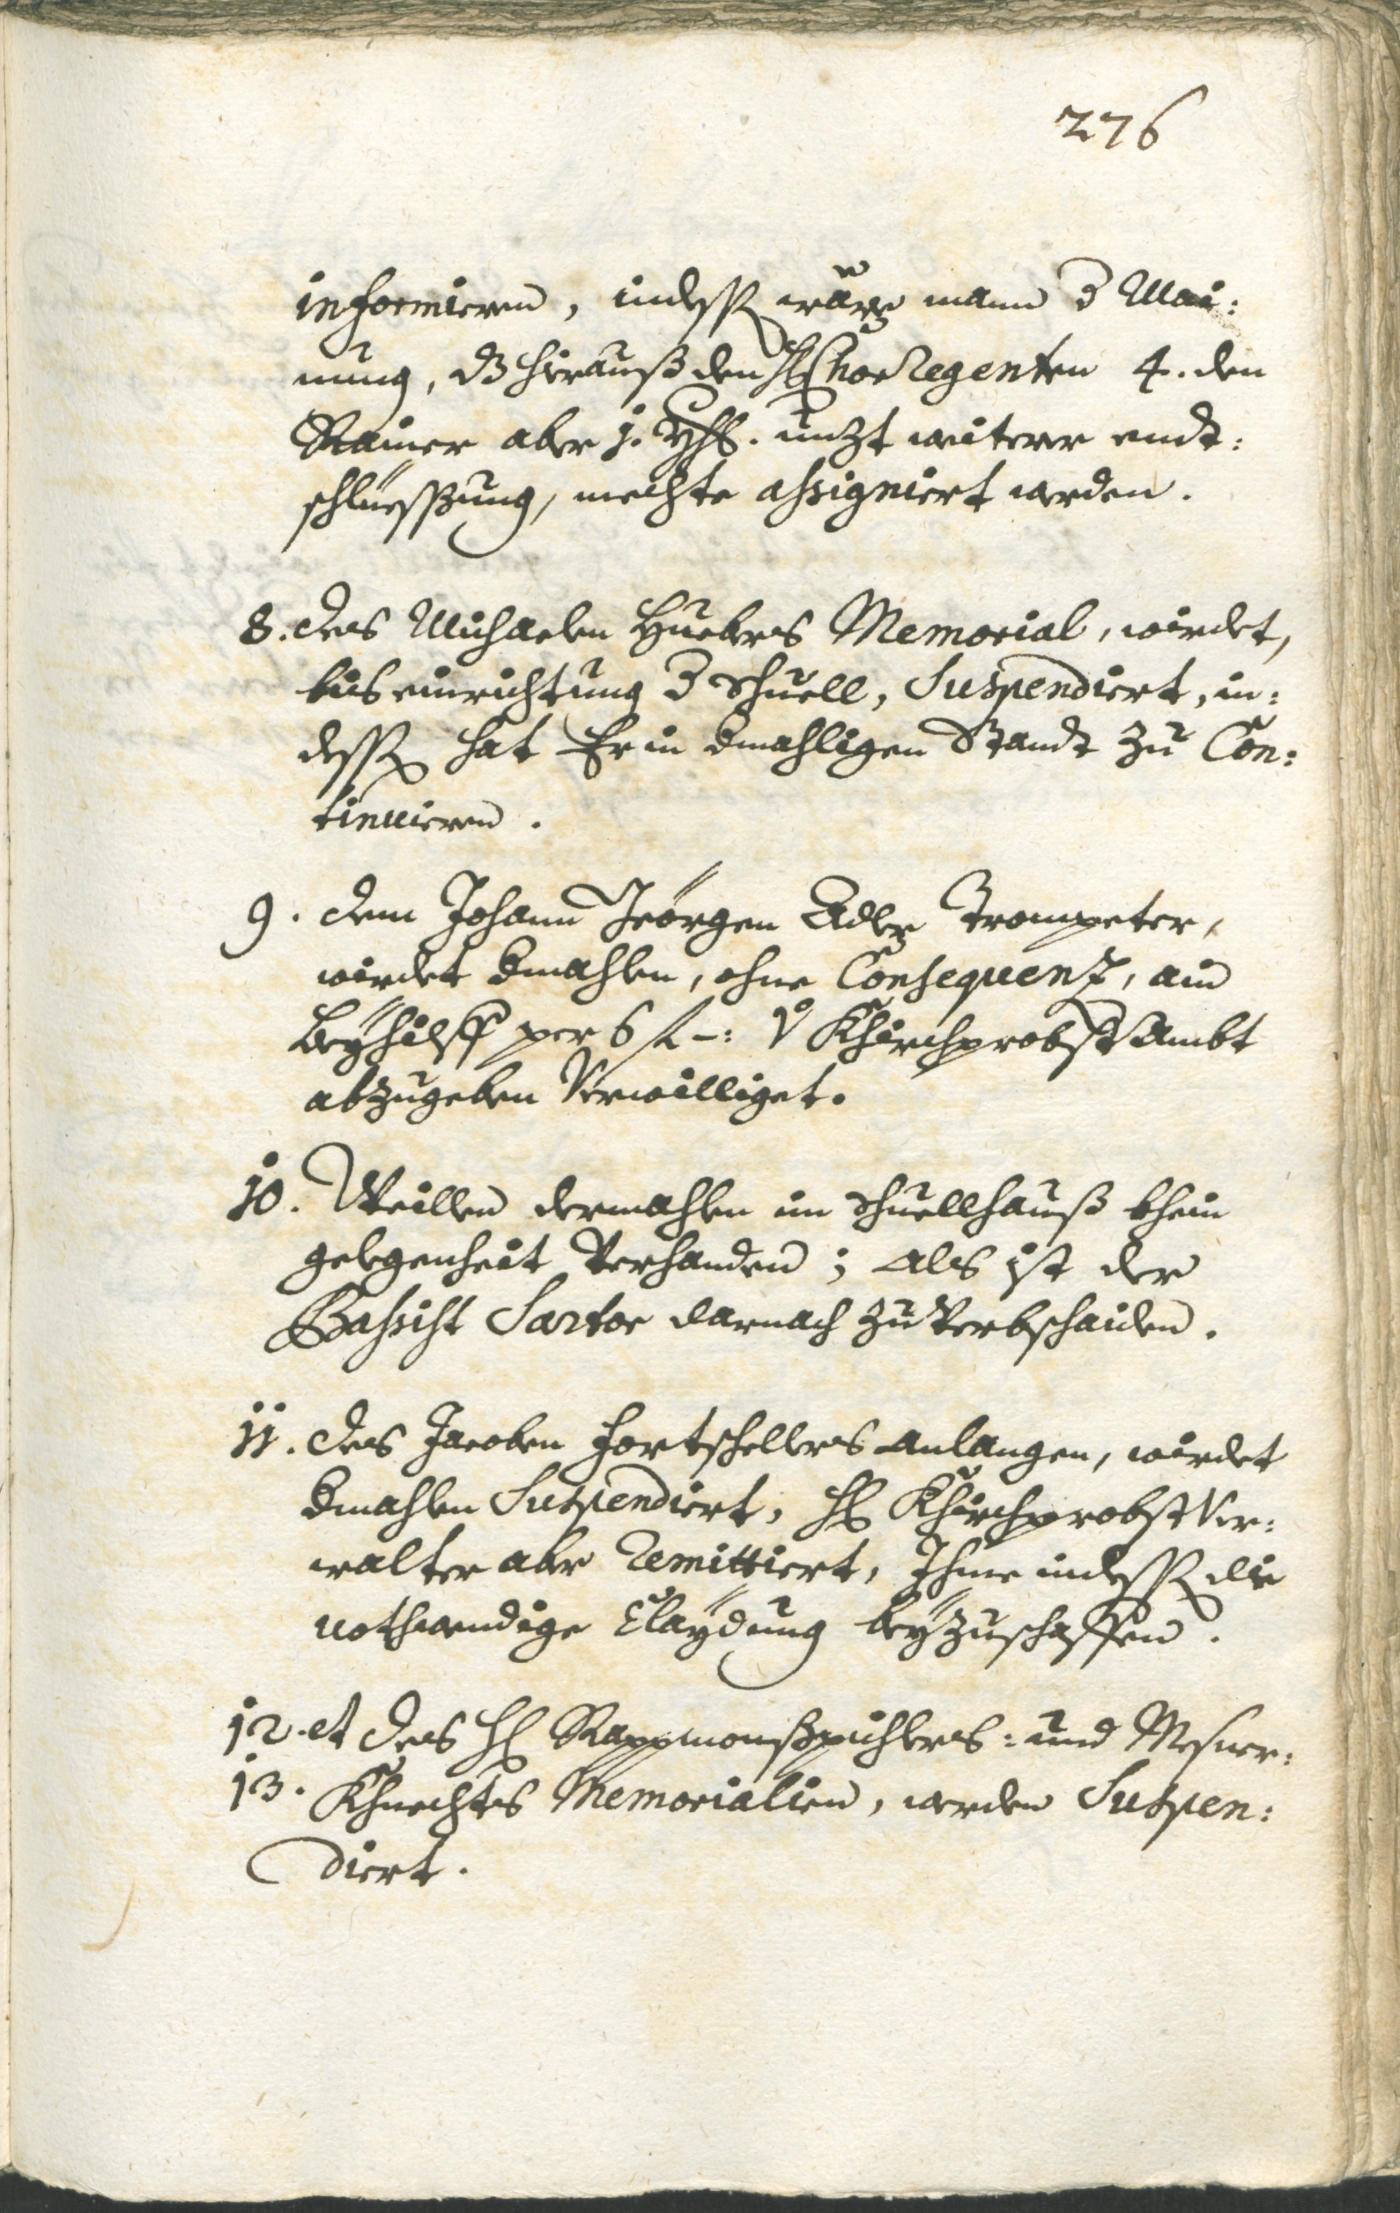 276
informieren, indessen wäre mann d Mai:
nung, dz hierauß den H ChorRegenten 4. den
Rainer aber j. Yhß. unzt weiterer endt:
schliessung, mechte assigniert werden.
8. des Michaelen Huebers Memorial, wirdet,
bis einrichtung d Schuell, Suspendiert, in:
dessen hat Er in dmahligen Standt zu Con:
tinuieren.
9. dem Johann Jeörgen Adler Trompeter,
wirdet dmahlen, ohne Consequenz, ain
Beÿhilff per 6 f –: v Khirchprobst Ambt
abzugeben Verwilliget.
j0. Weillen dermahlen im Schuellhauß khein
gelegenheit Verhanden; als ist der
Bassist Sartor darnach zu Verbschaiden.
jj. des Jacoben Fortschellers anlangen, wirdet
dmahlen Suspendiert, H Khirchprobst Ver:
walter aber Remittiert, Ihme indessen die
nothwendige Claÿdung beÿzuschaffen.
j2. et des H Rappmonßpichlers: und Mesner:
j3. Khnechtes Memorialien, werden Suspen:
diert.